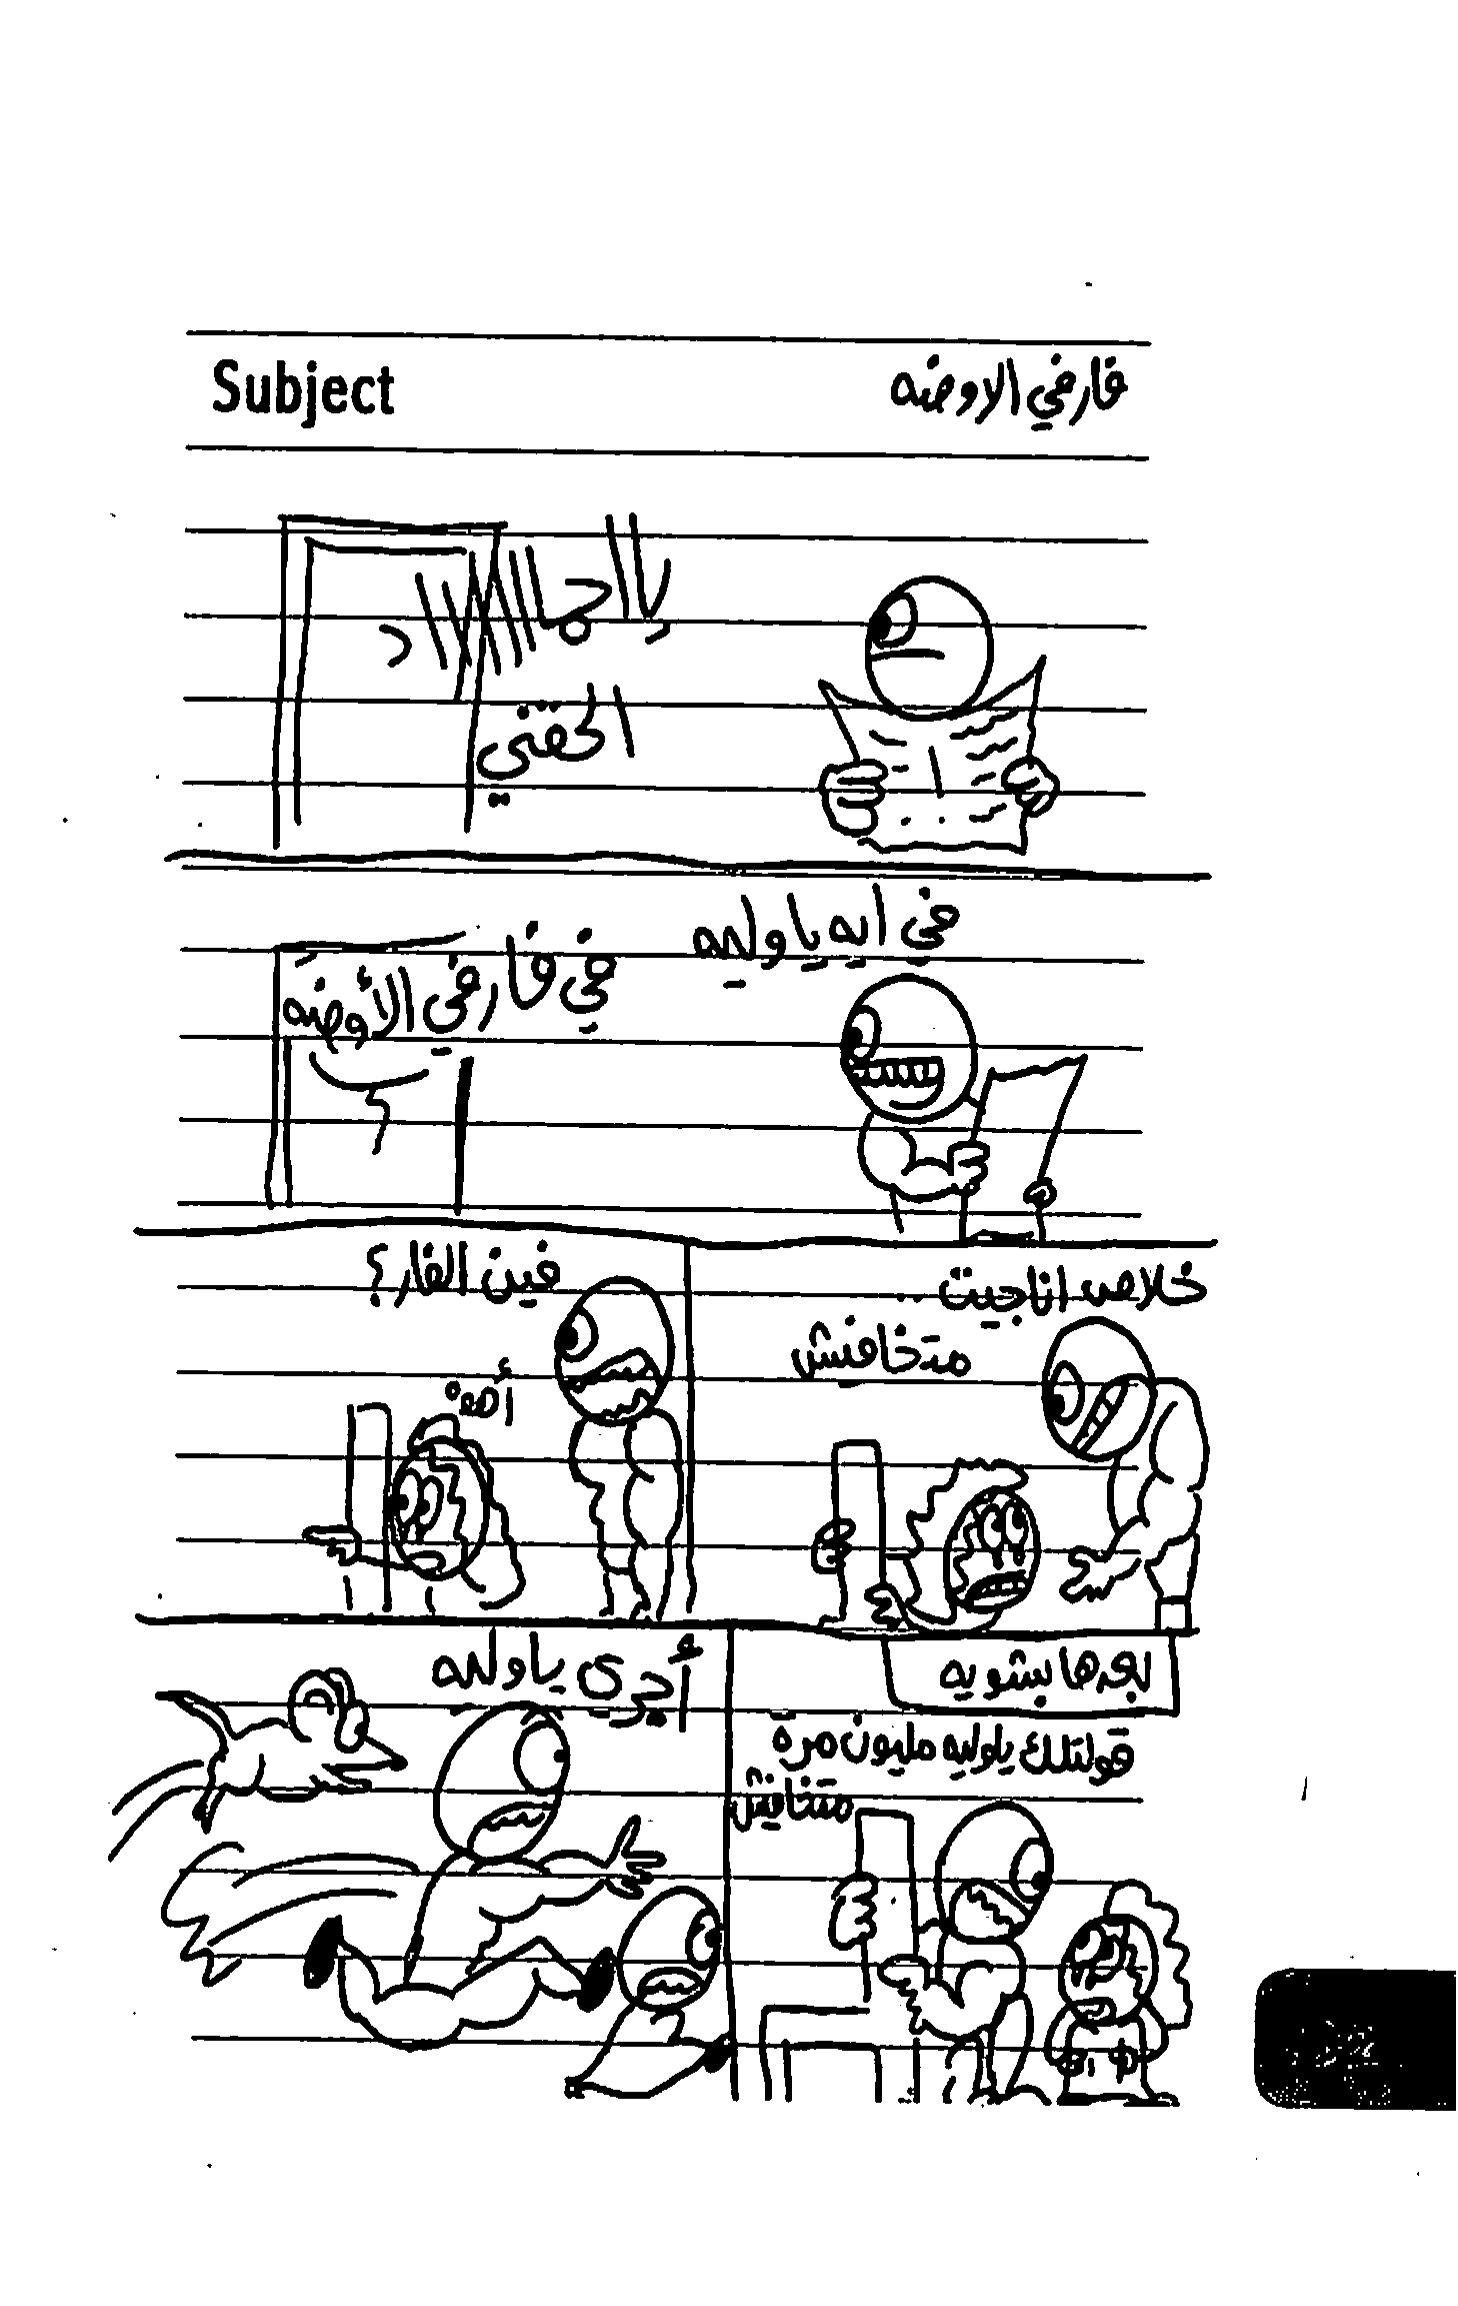 Subject
فار في الاوضه
الحقني
في ايه يا وليه
في فار في الأوضه
خلاص انا جيت ..
متخافش
فين الفار؟
أهه
بعدها بشويه
قولتلك ياوليه مليون مره
متخافيش
أجري ياوليه